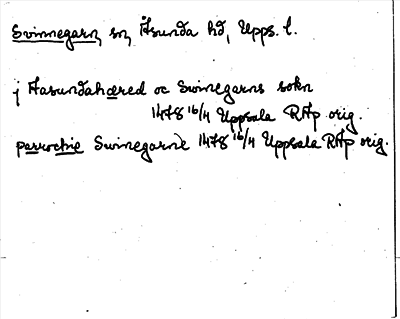 Svinnegarn, sn, Åsunda hd, Upps. l.
j Aasundahæred oc Svinegarns sokn
1478 16/4 Uppsala RAp orig.
parrochie Swinegarne 1478 16/4 Uppsala RAp orig.